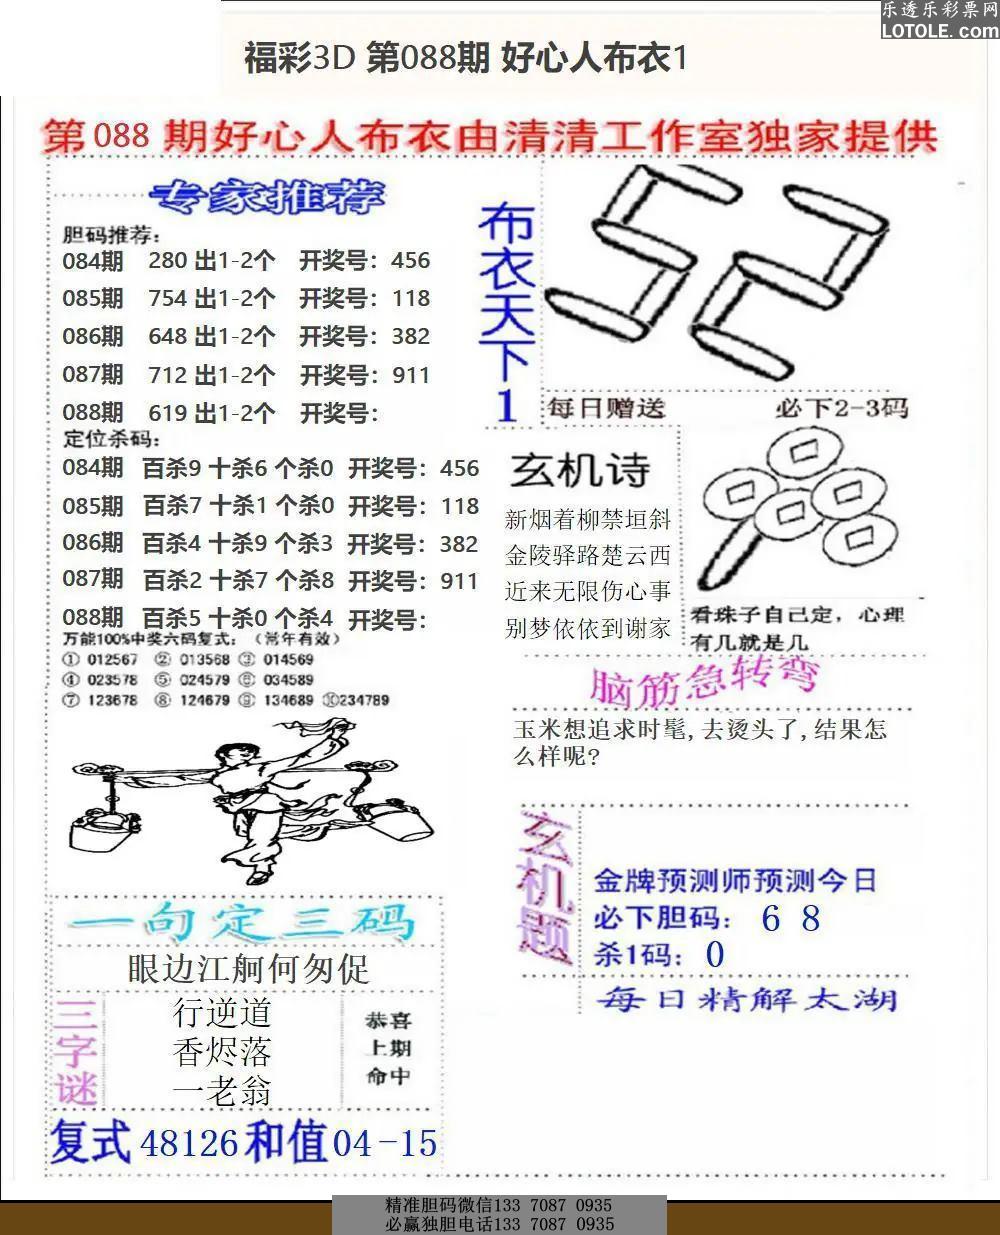 乐透乐彩票网
LOTOLE.com
福彩3D 第088期 好心人布衣1
第088 期好心人布衣由清清工作室独家提供
专家推荐
胆码推荐：
084期 280 出1-2个 开奖号：456
085期 754 出1-2个 开奖号：118
086期 648 出1-2个 开奖号：382
087期 712 出1-2个 开奖号：911
088期 619 出1-2个 开奖号：
定位杀码：
084期 百杀9 十杀6 个杀0 开奖号：456
085期 百杀7 十杀1 个杀0 开奖号：118
086期 百杀4 十杀9 个杀3 开奖号：382
087期 百杀2 十杀7 个杀8 开奖号：911
088期 百杀5 十杀0 个杀4 开奖号：
万能100%中奖六码复式：（常年有效）
① 012567 ② 013568 ③ 014569
④ 023578 ⑤ 024579 ⑥ 034589
⑦ 123678 ⑧ 124679 ⑨ 134689 ⑩234789
一句定三码
眼边江舸何匆促
三字谜
行逆道
香烬落
一老翁
恭喜
上期
命中
复式 48126 和值 04-15
布衣天下1
52
每日赠送 必下2-3码
玄机诗
新烟着柳禁垣斜
金陵驿路楚云西
近来无限伤心事
别梦依依到谢家
看珠子自己定，心理
有几就是几
脑筋急转弯
玉米想追求时髦,去烫头了,结果怎
么样呢?
玄机题
金牌预测师预测今日
必下胆码： 6 8
杀1码： 0
每日精解太湖
精准胆码微信133 7087 0935
必赢独胆电话133 7087 0935